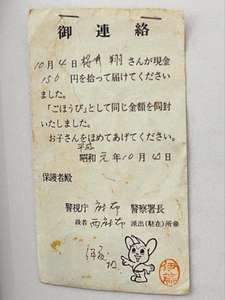 御連絡
10月4日桜井 翔さんが現金
150円を拾って届けてください
ました。
「ごほうび」として同じ金額を同封
いたしました。
お子さんをほめてあげてください。
平成
昭和 元年10月4日
保護者殿
警視庁 麻布 警察署長
扱者 西麻布 派出(駐在)所